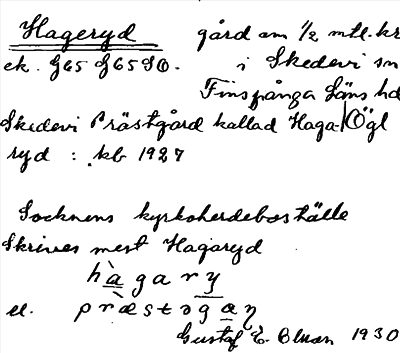 Hageryd gård om 1/2 mtl. kr
ek. G65 G65 SO. i Skedevi sn
Finspånga läns hd
Skedevi Prästgård kallad Haga- Ögl
ryd : kb 1927
Socknens kyrkoherdeboställe
Skrives mest Hagaryd
hàgary
el. præstogaŋ
Gustaf E. 1930